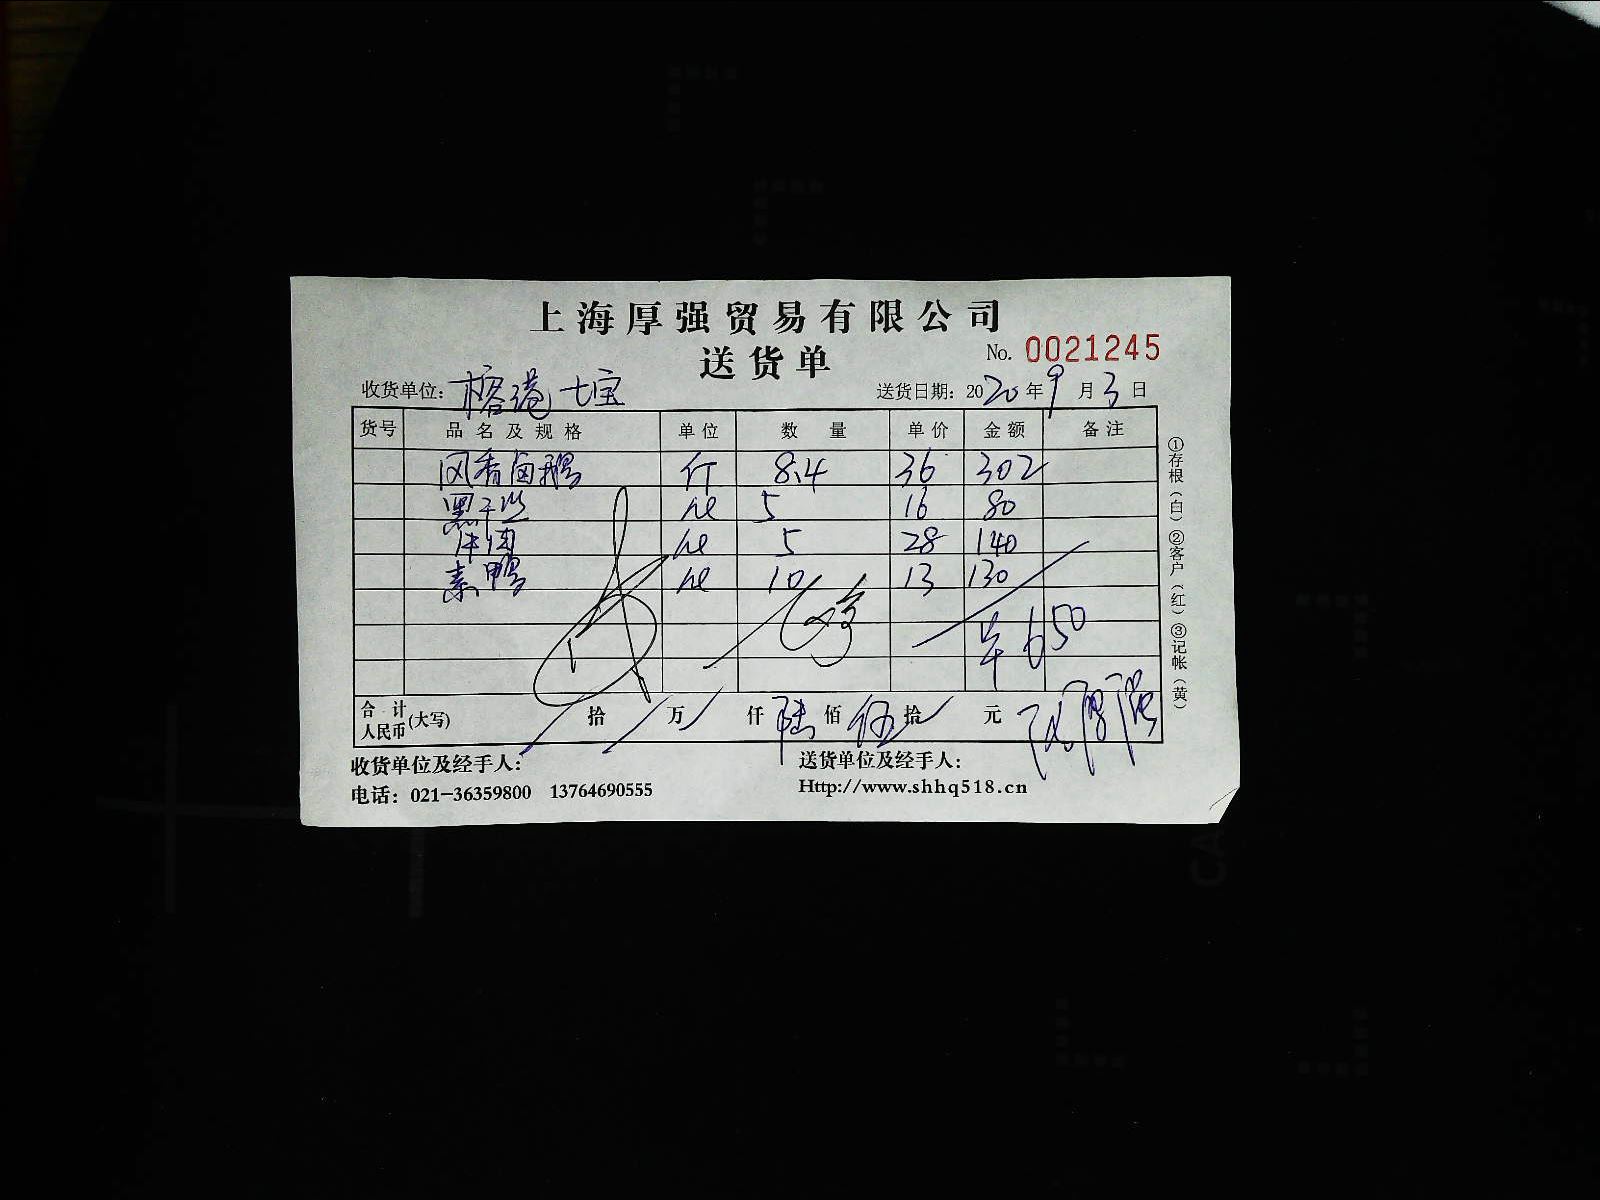 上海厚强贸易有限公司
送货单
No. 0021245
收货单位：榕港七宝 送货日期：2020年9月3日
货号 品名及规格 单位 数量 单价 金额 备注
风香卤鹅 斤 8.4 36 302
黑干丝 5 16 80
5 28 140
素鸭 10 13 130
650
合计人民币(大写) 拾 万 仟 陆佰 伍拾 元
收货单位及经手人： 送货单位及经手人：
电话：021-36359800 13764690555 Http://www.shhq518.cn
①存根（白）②客户（红）③记帐（黄）